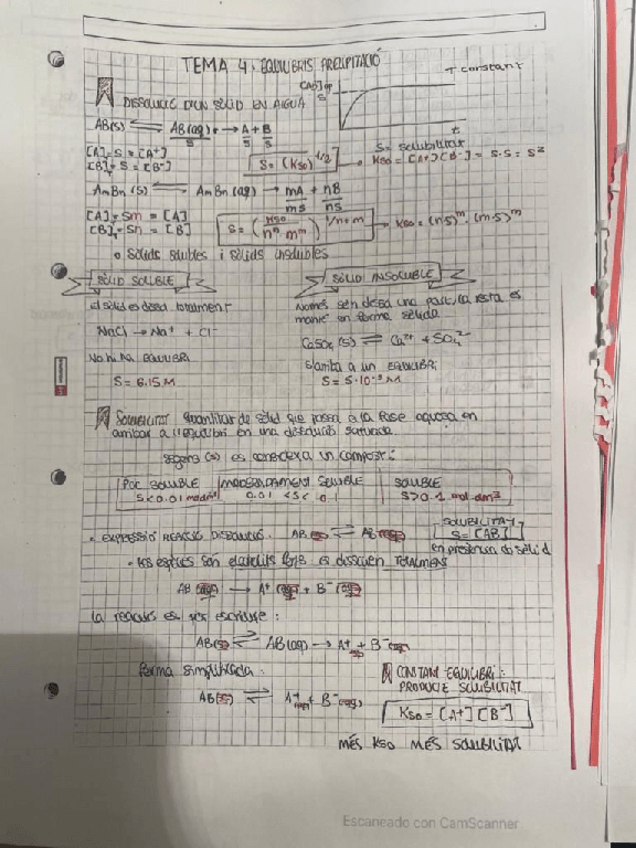 TEMA 4. EQUILIBRIS PRECIPITACIÓ
T constant
DISSOLUCIÓ D'UN SÒLID EN AIGUA
AB(s) ⇌ AB(aq) → A + B
S S S
t
[A] = S = [A⁺]
[B] = S = [B⁻]
S = (Kso)^1/2
S = solubilitat
Kso = [A⁺][B⁻] = S·S = S²
AmBn (s) ⇌ AmBn (aq) → mA + nB
mS nS
[A] = Sm = [A]
[B] = Sn = [B]
S = (Kso / nⁿ mᵐ)^1/n+m
Kso = (n·S)ᵐ · (m·S)ᵐ
Sòlids solubles i sòlids insolubles
SÒLID SOLUBLE
SÒLID INSOLUBLE
El sòlid es dissol totalment
NaCl → Na⁺ + Cl⁻
No hi ha EQUILIBRI
S = 6.15 M
Només s'en dissol una part, la resta es
manté en forma sòlida
CaSO₄ (s) ⇌ Ca²⁺ + SO₄²⁻
S'arriba a un EQUILIBRI
S = 5·10⁻³ M
SOLUBILITAT quantitat de sòlid que passa a la fase aquosa en
arribar a l'equilibri en una dissolució saturada.
segons (s) es coneixerà un compost:
POC SOLUBLE MODERADAMENT SOLUBLE SOLUBLE
S<0.01 0.01 <S< 0.1 S>0.1 mol·dm³
EXPRESSIÓ REACCIÓ DISSOLUCIÓ. AB(s) ⇌ AB(aq)
SOLUBILITAT
S = [AB]
en presència de sòlid
els espècies són electròlits forts es dissocien TOTALMENT
AB(aq) → A⁺(aq) + B⁻(aq)
La reacció es pot escriure:
AB(s) ⇌ AB(aq) → A⁺(aq) + B⁻(aq)
forma simplificada:
AB(s) ⇌ A⁺(aq) + B⁻(aq)
CONSTANT EQUILIBRI:
PRODUCTE SOLUBILITAT
Kso = [A⁺][B⁻]
MÉS KSO MÉS SOLUBILITAT
Escaneado con CamScanner